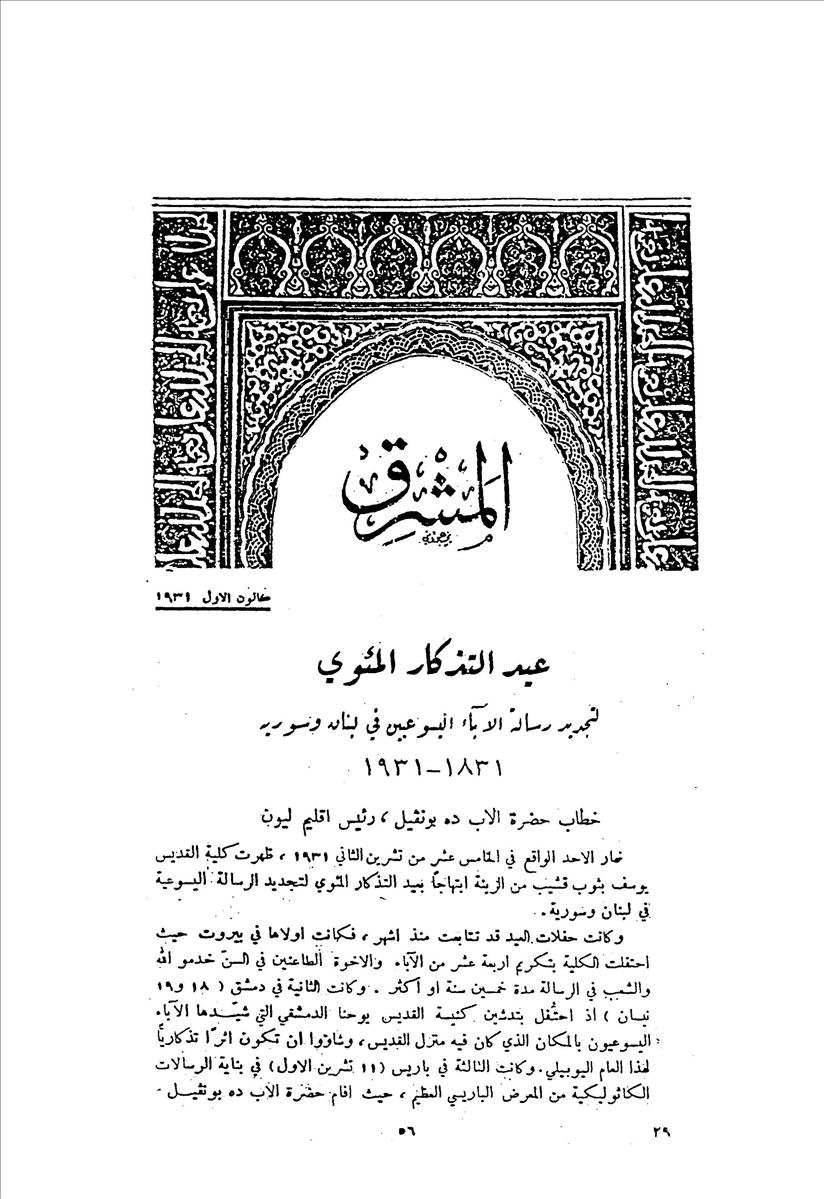 المشرق
كانون الاول ١٩٣١
عيد التذكار المئوي
لتجديد رسالة الآباء اليسوعيين في لبنان وسورية
١٨٣١-١٩٣١
خطاب حضرة الاب ده بونڤيل ، رئيس اقليم ليون
نهار الاحد الواقع في الخامس عشر من تشرين الثاني ١٩٣١ ، ظهرت كلية القديس
يوسف بثوب قشيب من الزينة ابتهاجاً بعيد التذكار المئوي لتجديد الرسالة اليسوعية
في لبنان وسورية .
وكانت حفلات العيد قد تتابعت منذ اشهر ، فكانت اولاها في بيروت حيث
احتفلت الكلية بتكريم اربعة عشر من الآباء والاخوة الطاعنين في السنّ خدموا الله
والشعب في الرسالة مدة خمسين سنة او أكثر . وكانت الثانية في دمشق ( ١٨ و١٩
نيسان ) اذ احتُفل بتدشين كنيسة القديس يوحنا الدمشقي التي شيّدها الآباء
اليسوعيون بالمكان الذي كان فيه منزل القديس ، وشاؤوا ان تكون اثرًا تذكاريًّا
لهذا العام اليوبيلي . وكانت الثالثة في باريس (١١ تشرين الاول) في بناية الرسالات
الكاثوليكية من المعرض الباريسي العظيم ، حيث اقام حضرة الاب ده بونڤيل -
٢٩
٥٦